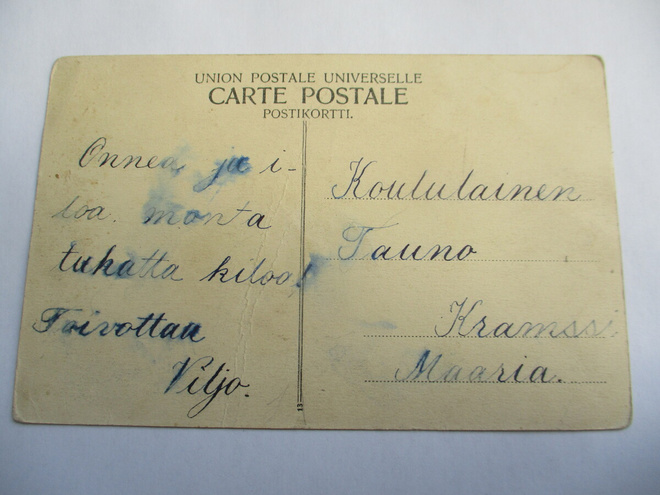 UNION POSTALE UNIVERSELLE
CARTE POSTALE
POSTIKORTTI.
Onnea ja i-
loa. monta
tuhatta kiloa!
Toivottaa
Viljo.
Koululainen
Tauno
Kramssi
Maaria.
13